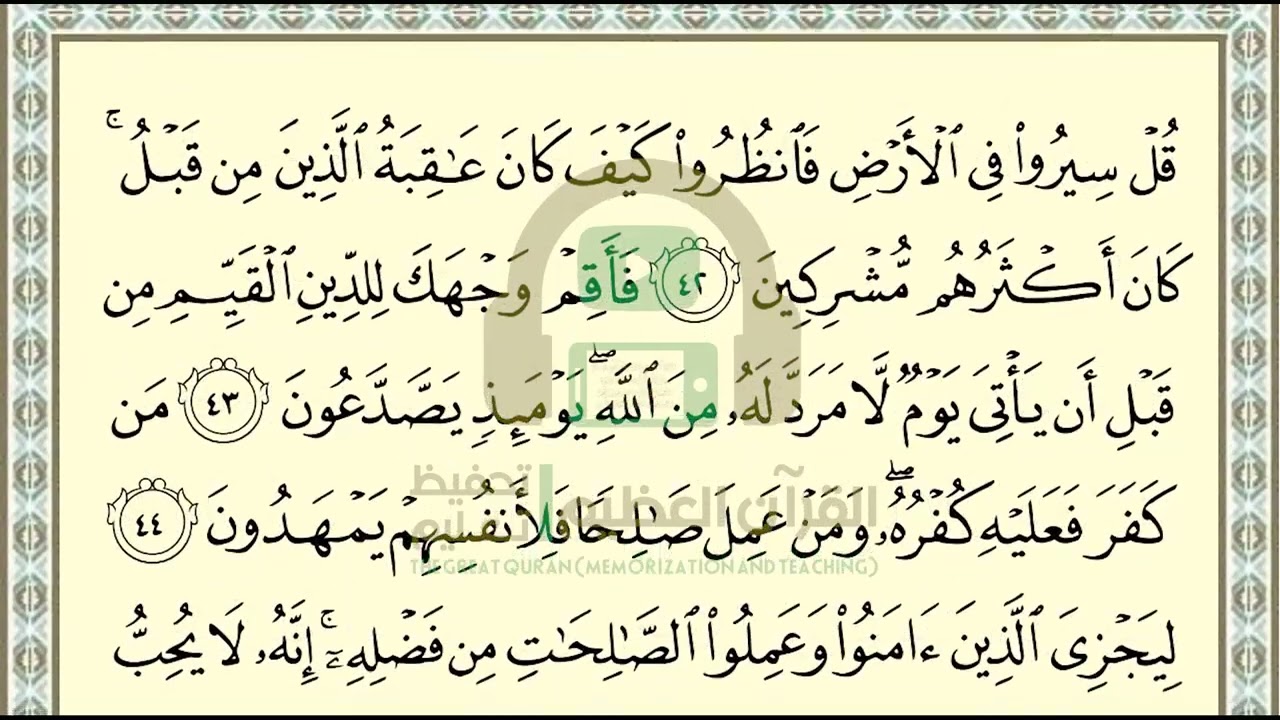 قُلْ سِيرُوا۟ فِى ٱلْأَرْضِ فَٱنظُرُوا۟ كَيْفَ كَانَ عَـٰقِبَةُ ٱلَّذِينَ مِن قَبْلُ ۚ
كَانَ أَكْثَرُهُم مُّشْرِكِينَ ٤٢ فَأَقِمْ وَجْهَكَ لِلدِّينِ ٱلْقَيِّمِ مِن
قَبْلِ أَن يَأْتِىَ يَوْمٌ لَّا مَرَدَّ لَهُۥ مِنَ ٱللَّهِ ۖ يَوْمَئِذٍ يَصَّدَّعُونَ ٤٣ مَن
كَفَرَ فَعَلَيْهِ كُفْرُهُۥ ۖ وَمَنْ عَمِلَ صَـٰلِحًا فَلِأَنفُسِهِمْ يَمْهَدُونَ ٤٤
القرآن العظيم تحفيظ تعليم
THE GREAT QURAN (MEMORIZATION AND TEACHING)
لِيَجْزِىَ ٱلَّذِينَ ءَامَنُوا۟ وَعَمِلُوا۟ ٱلصَّـٰلِحَـٰتِ مِن فَضْلِهِۦٓ ۚ إِنَّهُۥ لَا يُحِبُّ